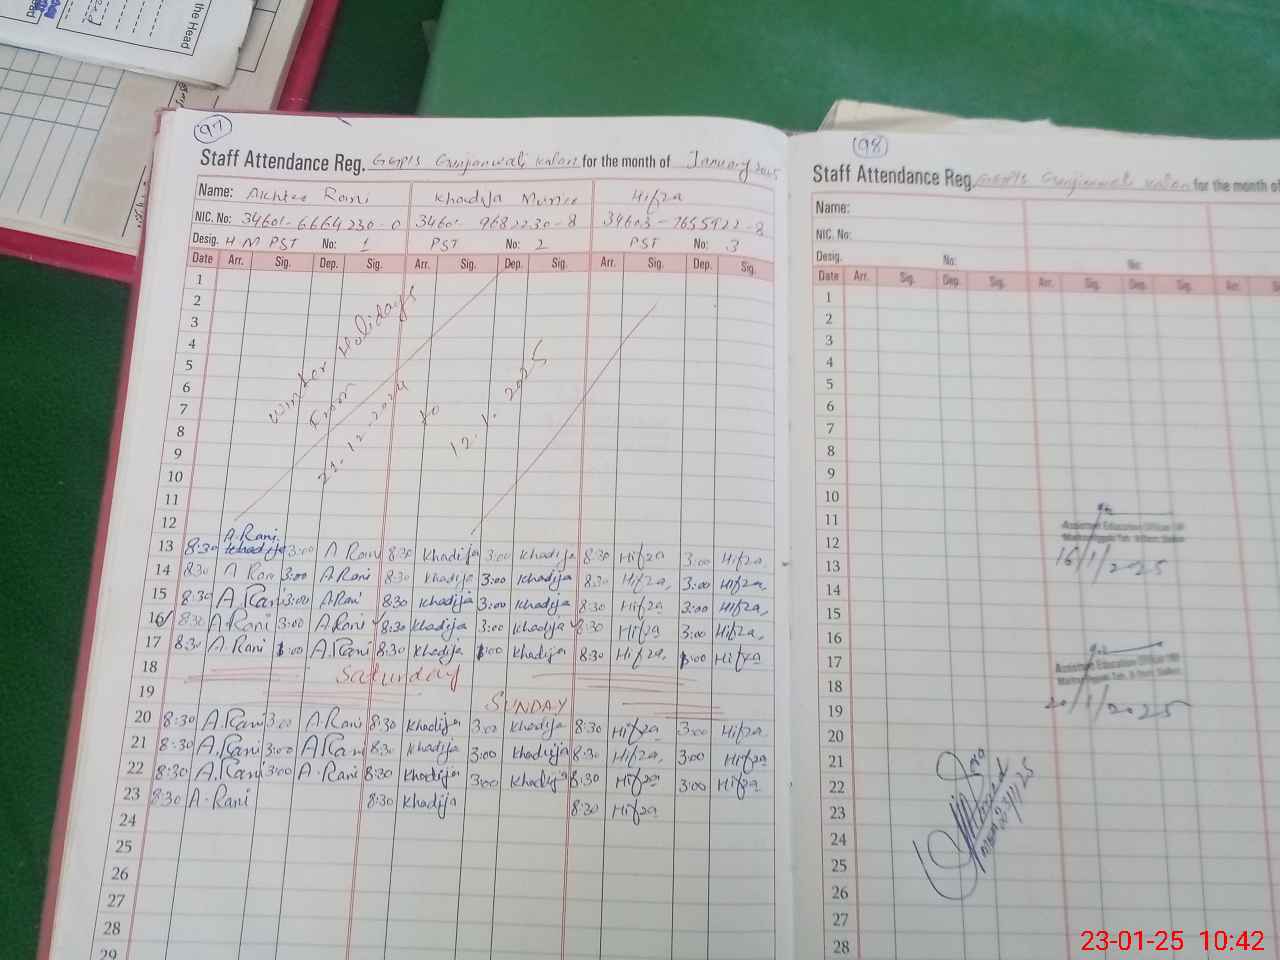 the Head
97
Staff Attendance Reg. GGPS Gunjanwali Kalan for the month of January 2025
Name: Akhter Rani Khadija Munir Hifza
NIC. No: 34601-6664230-0 34601-9682230-8 34603-7655922-8
Desig. H M PST No: 1 PST No: 2 PST No: 3
Date Arr. Sig. Dep. Sig. Arr. Sig. Dep. Sig. Arr. Sig. Dep. Sig.
1
2
3
4
5
6
7
8
9
10
11
12
Winter Holidays
From
21-12-2024 to 12.1.2025
A.Rani
13 8:30 Khadija 3:00 A Rani 8:30 Khadija 3:00 Khadija 8:30 Hifza 3:00 Hifza
14 830 A Rani 3:00 A.Rani 8:30 Khadija 3:00 Khadija 8:30 Hifza, 3:00 Hifza,
15 8:30 A Rani 3:00 A.Rani 8:30 Khadija 3:00 Khadija 8:30 Hifza 3:00 Hifza,
16 8:30 A.Rani 3:00 A.Rani 8:30 Khadija 3:00 Khadija 8:30 Hifza 3:00 Hifza,
17 8:30 A.Rani 1:00 A.Rani 8:30 Khadija 1:00 Khadija 8:30 Hifza, 1:00 Hifza
18 Saturday
19 SUNDAY
20 8:30 A.Rani 3:00 A.Rani 8:30 Khadija 3:00 Khadija 8:30 Hifza 3:00 Hifza
21 8:30 A.Rani 3:00 A Rani 8:30 Khadija 3:00 Khadija 8:30 Hifza, 3:00 Hifza
22 8:30 A.Rani 3:00 A.Rani 8:30 Khadija 3:00 Khadija 8:30 Hifza 3:00 Hifza
23 8:30 A.Rani 8:30 Khadija 8:30 Hifza
24
25
26
27
28
29
98
Staff Attendance Reg. GGPS Gunjanwali Kalan for the month of
Name:
NIC. No:
Desig. No: No:
Date Arr. Sig. Dep. Sig. Arr. Sig. Dep. Sig. Arr.
1
2
3
4
5
6
7
8
9
10
11
12
13
14
15
16
17
18
19
20
21
22
23
24
25
26
27
28
Assistant Education Officer
16/1/2025
Assistant Education Officer
20/1/2025
23/1/25
23-01-25 10:42